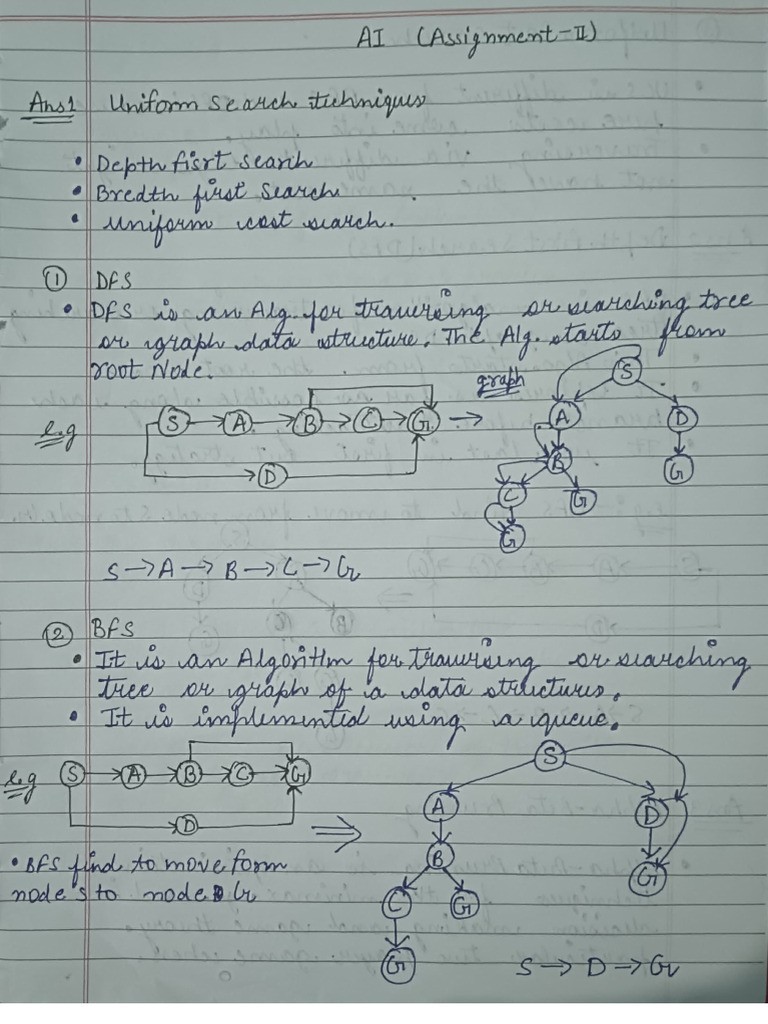 AI (Assignment-II)
Ans1 Uniform search techniques
• Depth fisrt search
• Bredth first search
• uniform cost search.
① DFS
• DFS is an Alg. for traversing or searching tree
or graph data structure. The Alg. starts from
root Node.
graph
e.g S → A → B → C → G →
D
S
A D
B G
C G
G
S → A → B → C → G
② BFS
• It is an Algorithm for traversing or searching
tree or graph of a data structures.
• It is implemented using a queue.
e.g S → A → B → C → G
D
⇒
S
A D
B
G
C G
G
• BFS find to move form
node s to node G
S → D → G